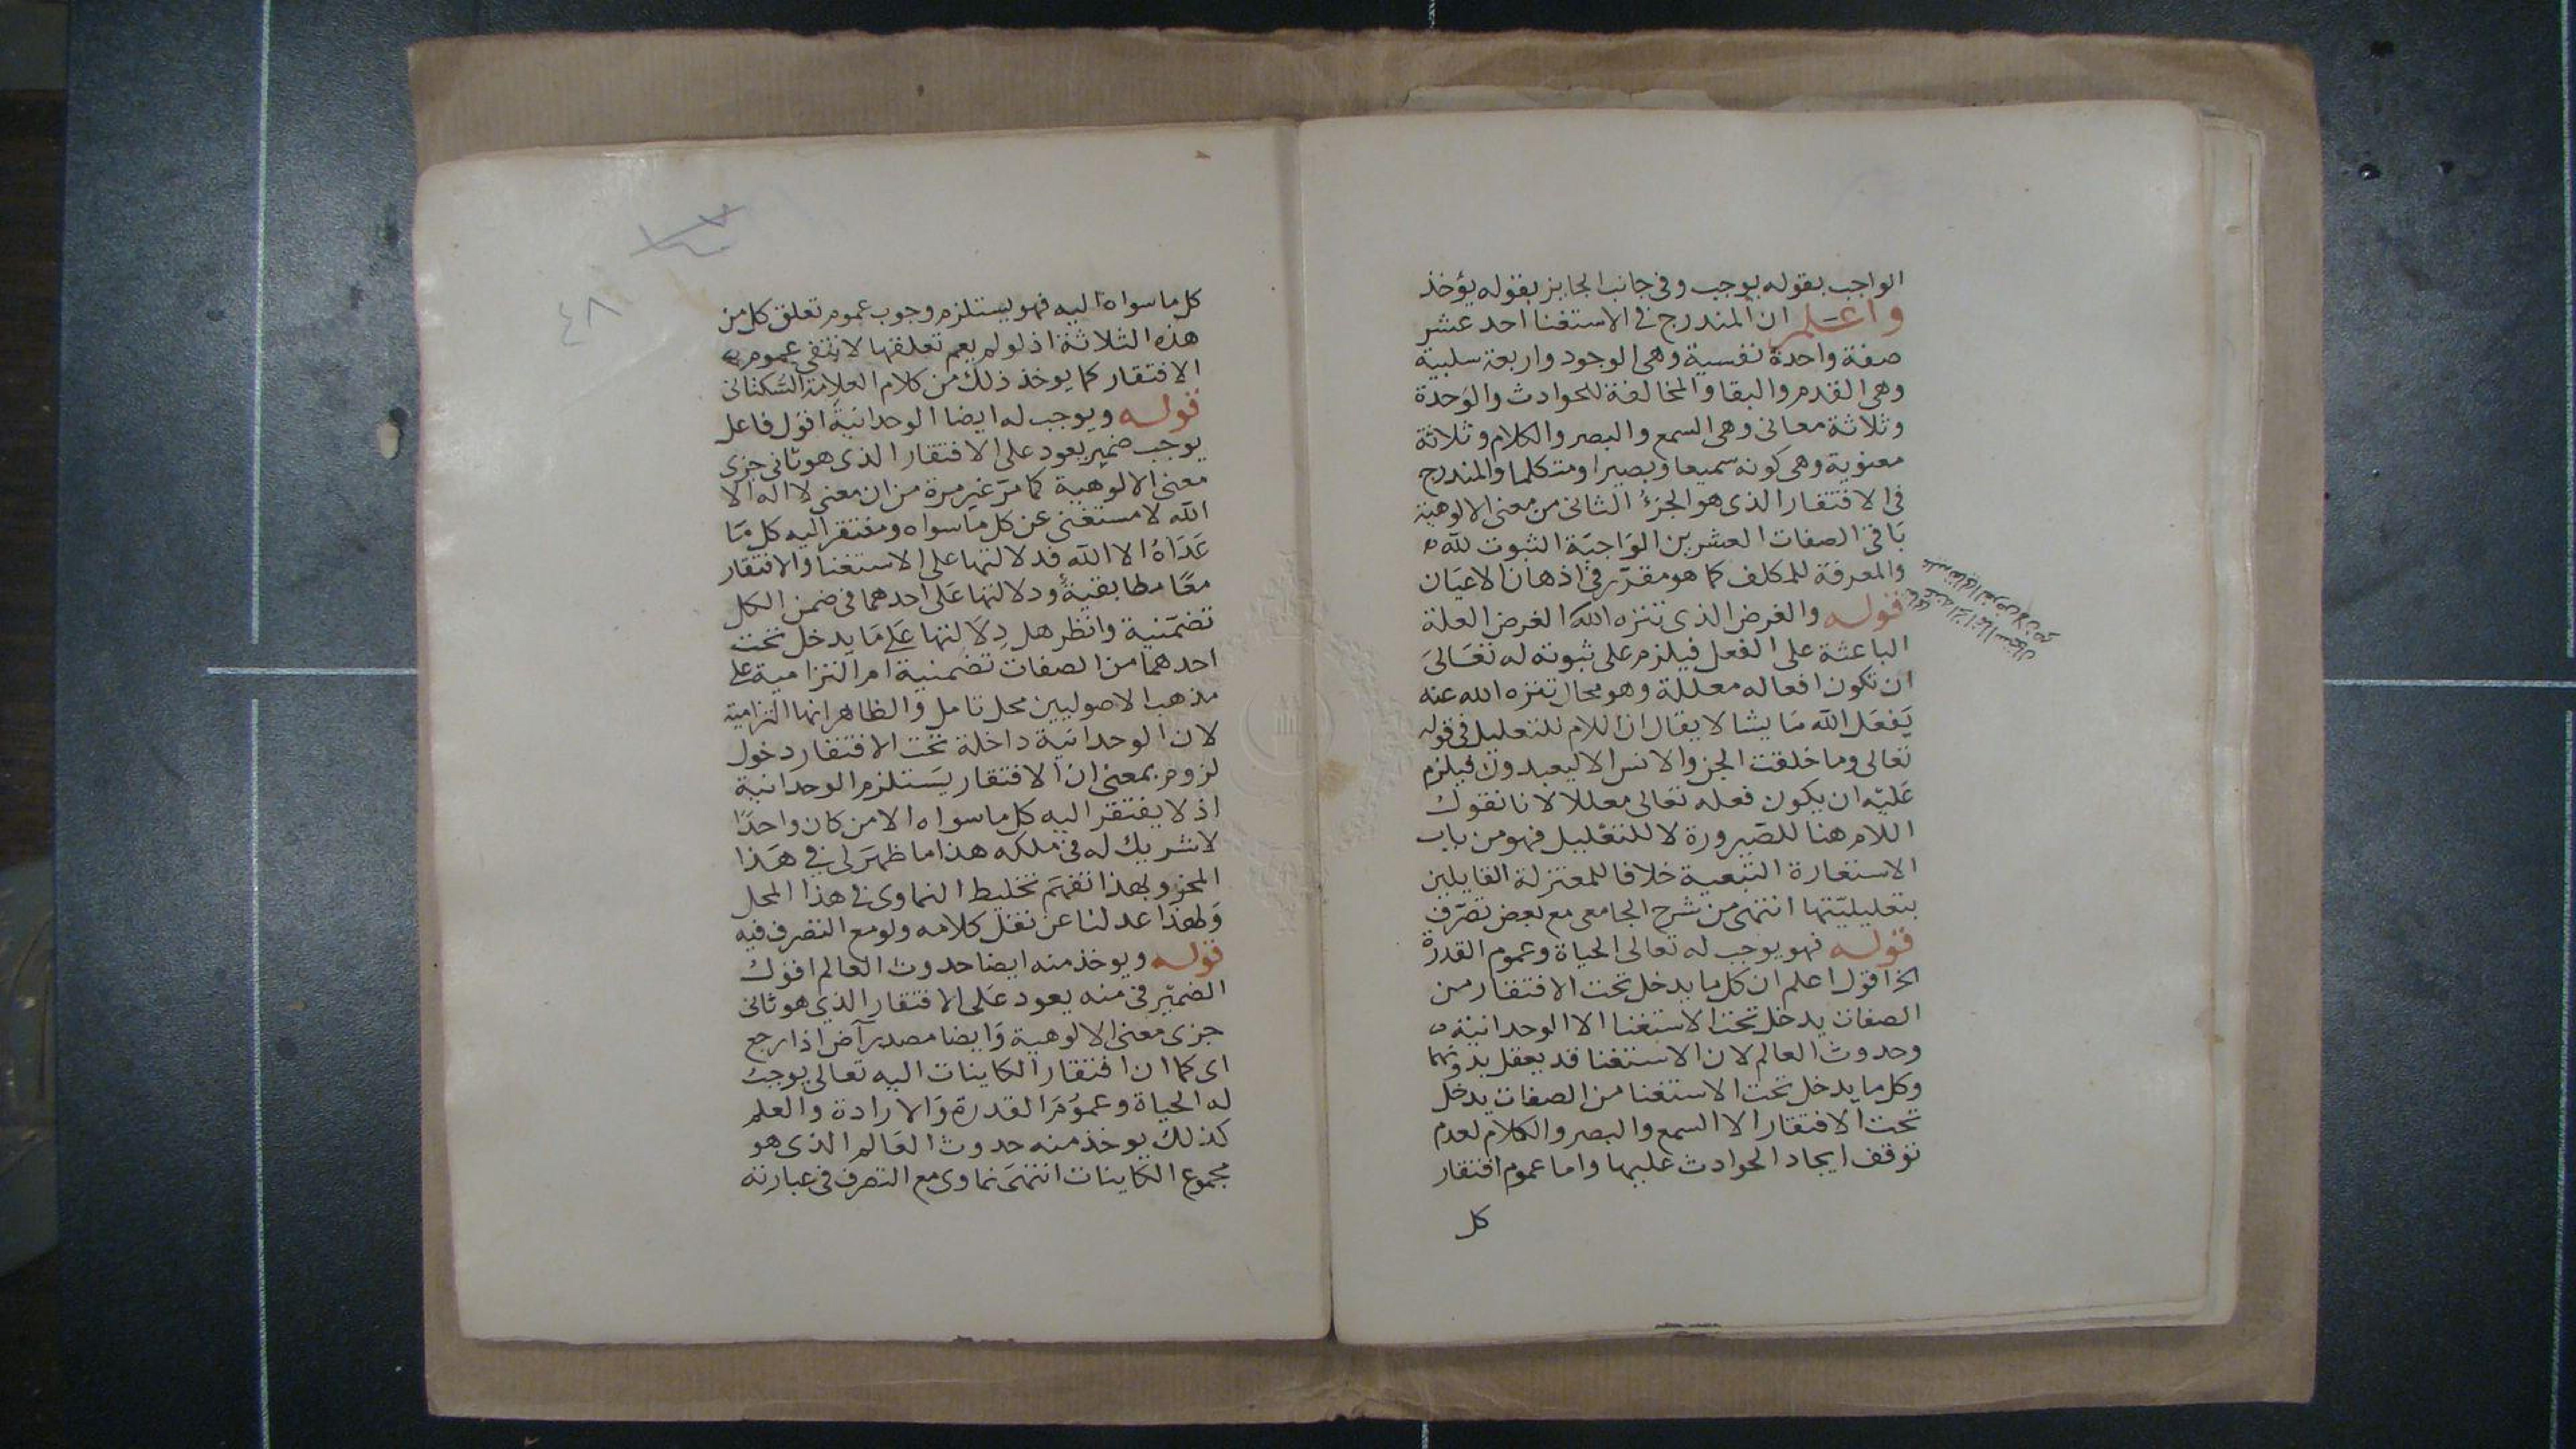 الواجب بقوله يوجب وفي جانب الجايز بقوله يؤخذ
واعلم ان المندرج في الاستغنا احد عشر
صفة واحدة نفسية وهي الوجود واربعة سلبية
وهي القدم والبقا والمخالفة للحوادث والوحدة
وثلاثة معانى وهي السمع والبصر والكلام وثلاثة
معنوية وهي كونه سميعا وبصيرا ومتكلما والمندرج
في الافتقار الذى هو الجزء الثانى من معنى الالوهية
باقي الصفات العشرين الواجبة الثبوت لله
والمعرفة للمكلف كما هو مقرر في اذهان الاعيان
قوله والغرض الذى تنزه الله الغرض العلة
الباعثة على الفعل فيلزم على ثبوته له تعالى
ان تكون افعاله معللة وهو محال تنزه الله عنه
يفعل الله ما يشا لا يقال ان اللام للتعليل في قوله
تعالى وما خلقت الجن والانس الا ليعبدون فيلزم
عليه ان يكون فعله تعالى معللا لانا نقول
اللام هنا للصيرورة لا للتعليل فهو من باب
الاستعارة التبعية خلافا للمعتزلة القايلين
بتعليليتها انتهى من شرح الجامعى مع بعض تصرف
قوله فهو يوجب له تعالى الحياة وعموم القدرة
الخ اقول اعلم ان كل ما يدخل تحت الافتقار من
الصفات يدخل تحت الاستغنا الا الوحدانية
وحدوث العالم لان الاستغنا قد يعقل بدونهما
وكل ما يدخل تحت الاستغنا من الصفات يدخل
تحت الافتقار الا السمع والبصر والكلام لعدم
توقف ايجاد الحوادث عليها واما عموم افتقار
كل
٤٨
كل ما سواه اليه فهو يستلزم وجوب عموم تعلق كل من
هذه الثلاثة اذ لو لم يعم تعلقها لانتفى عموم
الافتقار كما يوخذ ذلك من كلام العلامة السكتانى
قوله ويوجب له ايضا الوحدانية اقول فاعل
يوجب ضمير يعود على الافتقار الذى هو ثانى جزى
معنى الالوهية كما مر غير مرة من ان معنى لا اله الا
الله لا مستغنى عن كل ما سواه ومفتقر اليه كل ما
عداه الا الله فدلالتها على الاستغنا والافتقار
معا مطابقية ودلالتها على احدهما في ضمن الكل
تضمنية وانظر هل دلالتها على ما يدخل تحت
احدهما من الصفات تضمنية ام التزامية على
مذهب الاصوليين محل تامل والظاهر انها التزامية
لان الوحدانية داخلة تحت الافتقار دخول
لزوم بمعنى ان الافتقار يستلزم الوحدانية
اذ لا يفتقر اليه كل ما سواه الا من كان واحدا
لا شريك له في ملكه هذا ما ظهر لى في هذا
المحل وبهذا تفهم تخليط النماوى في هذا المحل
ولهذا عدلنا عن نقل كلامه ولو مع التصرف فيه
قوله ويوخذ منه ايضا حدوث العالم اقول
الضمير في منه يعود على الافتقار الذى هو ثانى
جزى معنى الالوهية وايضا مصدر آض اذا رجع
اى كما ان افتقار الكاينات اليه تعالى يوجب
له الحياة وعموم القدرة والارادة والعلم
كذلك يوخذ منه حدوث العالم الذى هو
مجموع الكاينات انتهى نماوى مع التصرف في عبارته